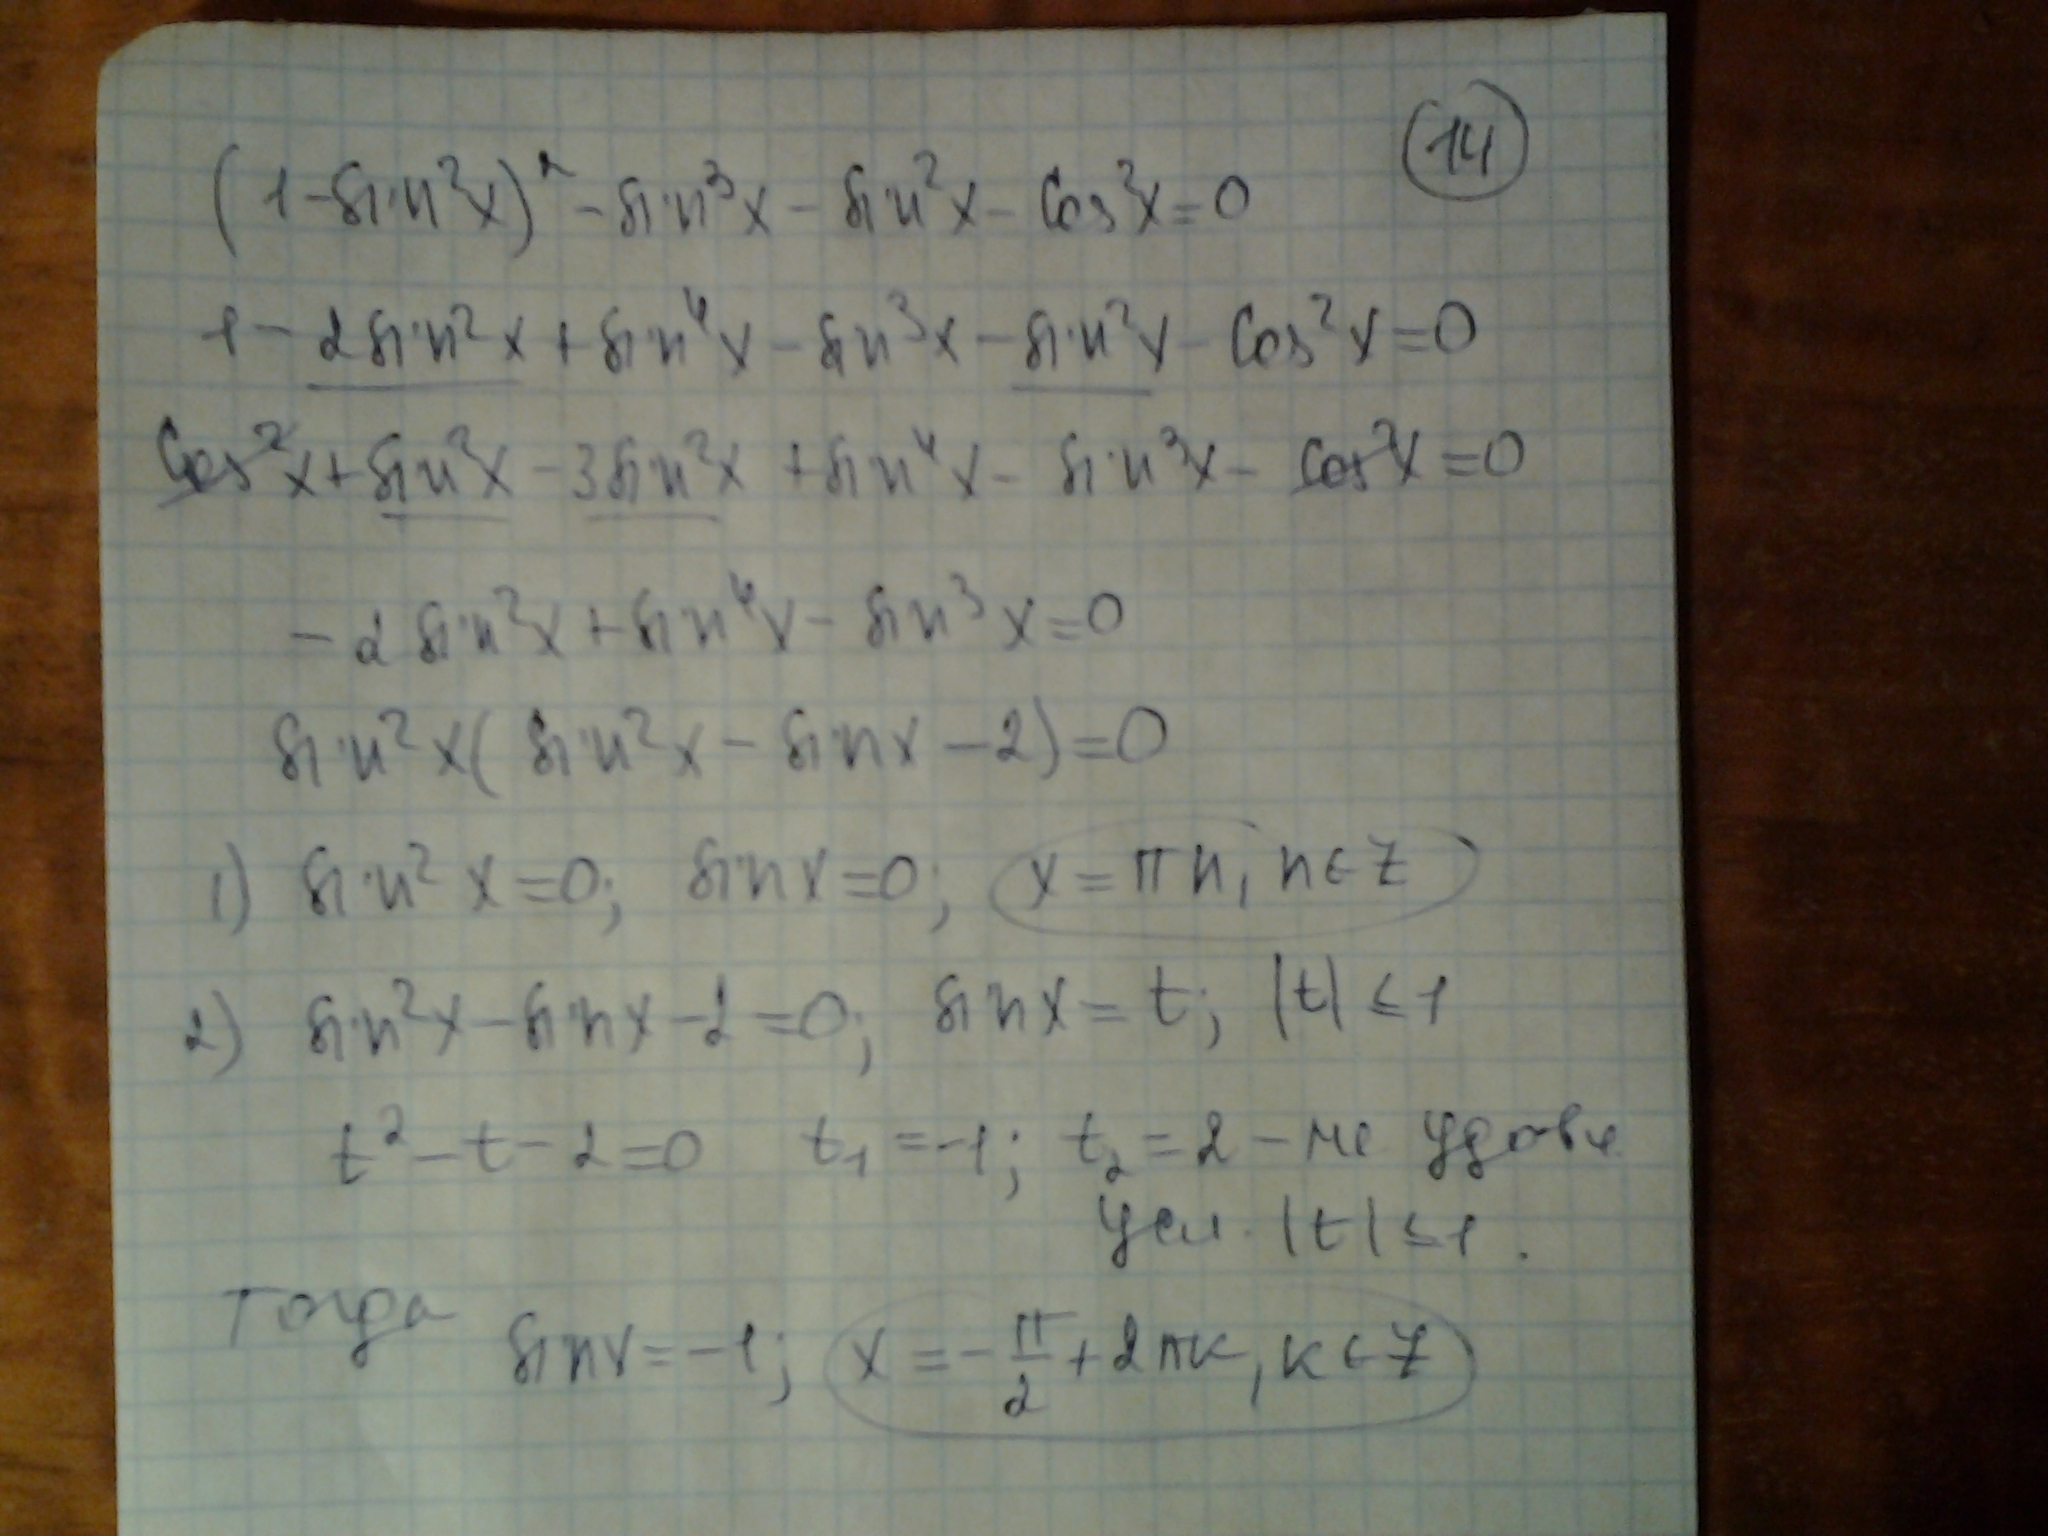 14
(1-sin²x)²-sin³x-sin²x-cos²x=0
1-2sin²x+sin⁴x-sin³x-sin²x-cos²x=0
cos²x+sin²x-3sin²x+sin⁴x-sin³x-cos²x=0
-2sin²x+sin⁴x-sin³x=0
sin²x(sin²x-sinx-2)=0
1) sin²x=0; sinx=0; x=πn, n∈Z
2) sin²x-sinx-2=0; sinx=t; |t|≤1
t²-t-2=0 t₁=-1; t₂=2-не удовл.
усл. |t|≤1.
Тогда sinx=-1; x=-π/2+2πк, к∈Z